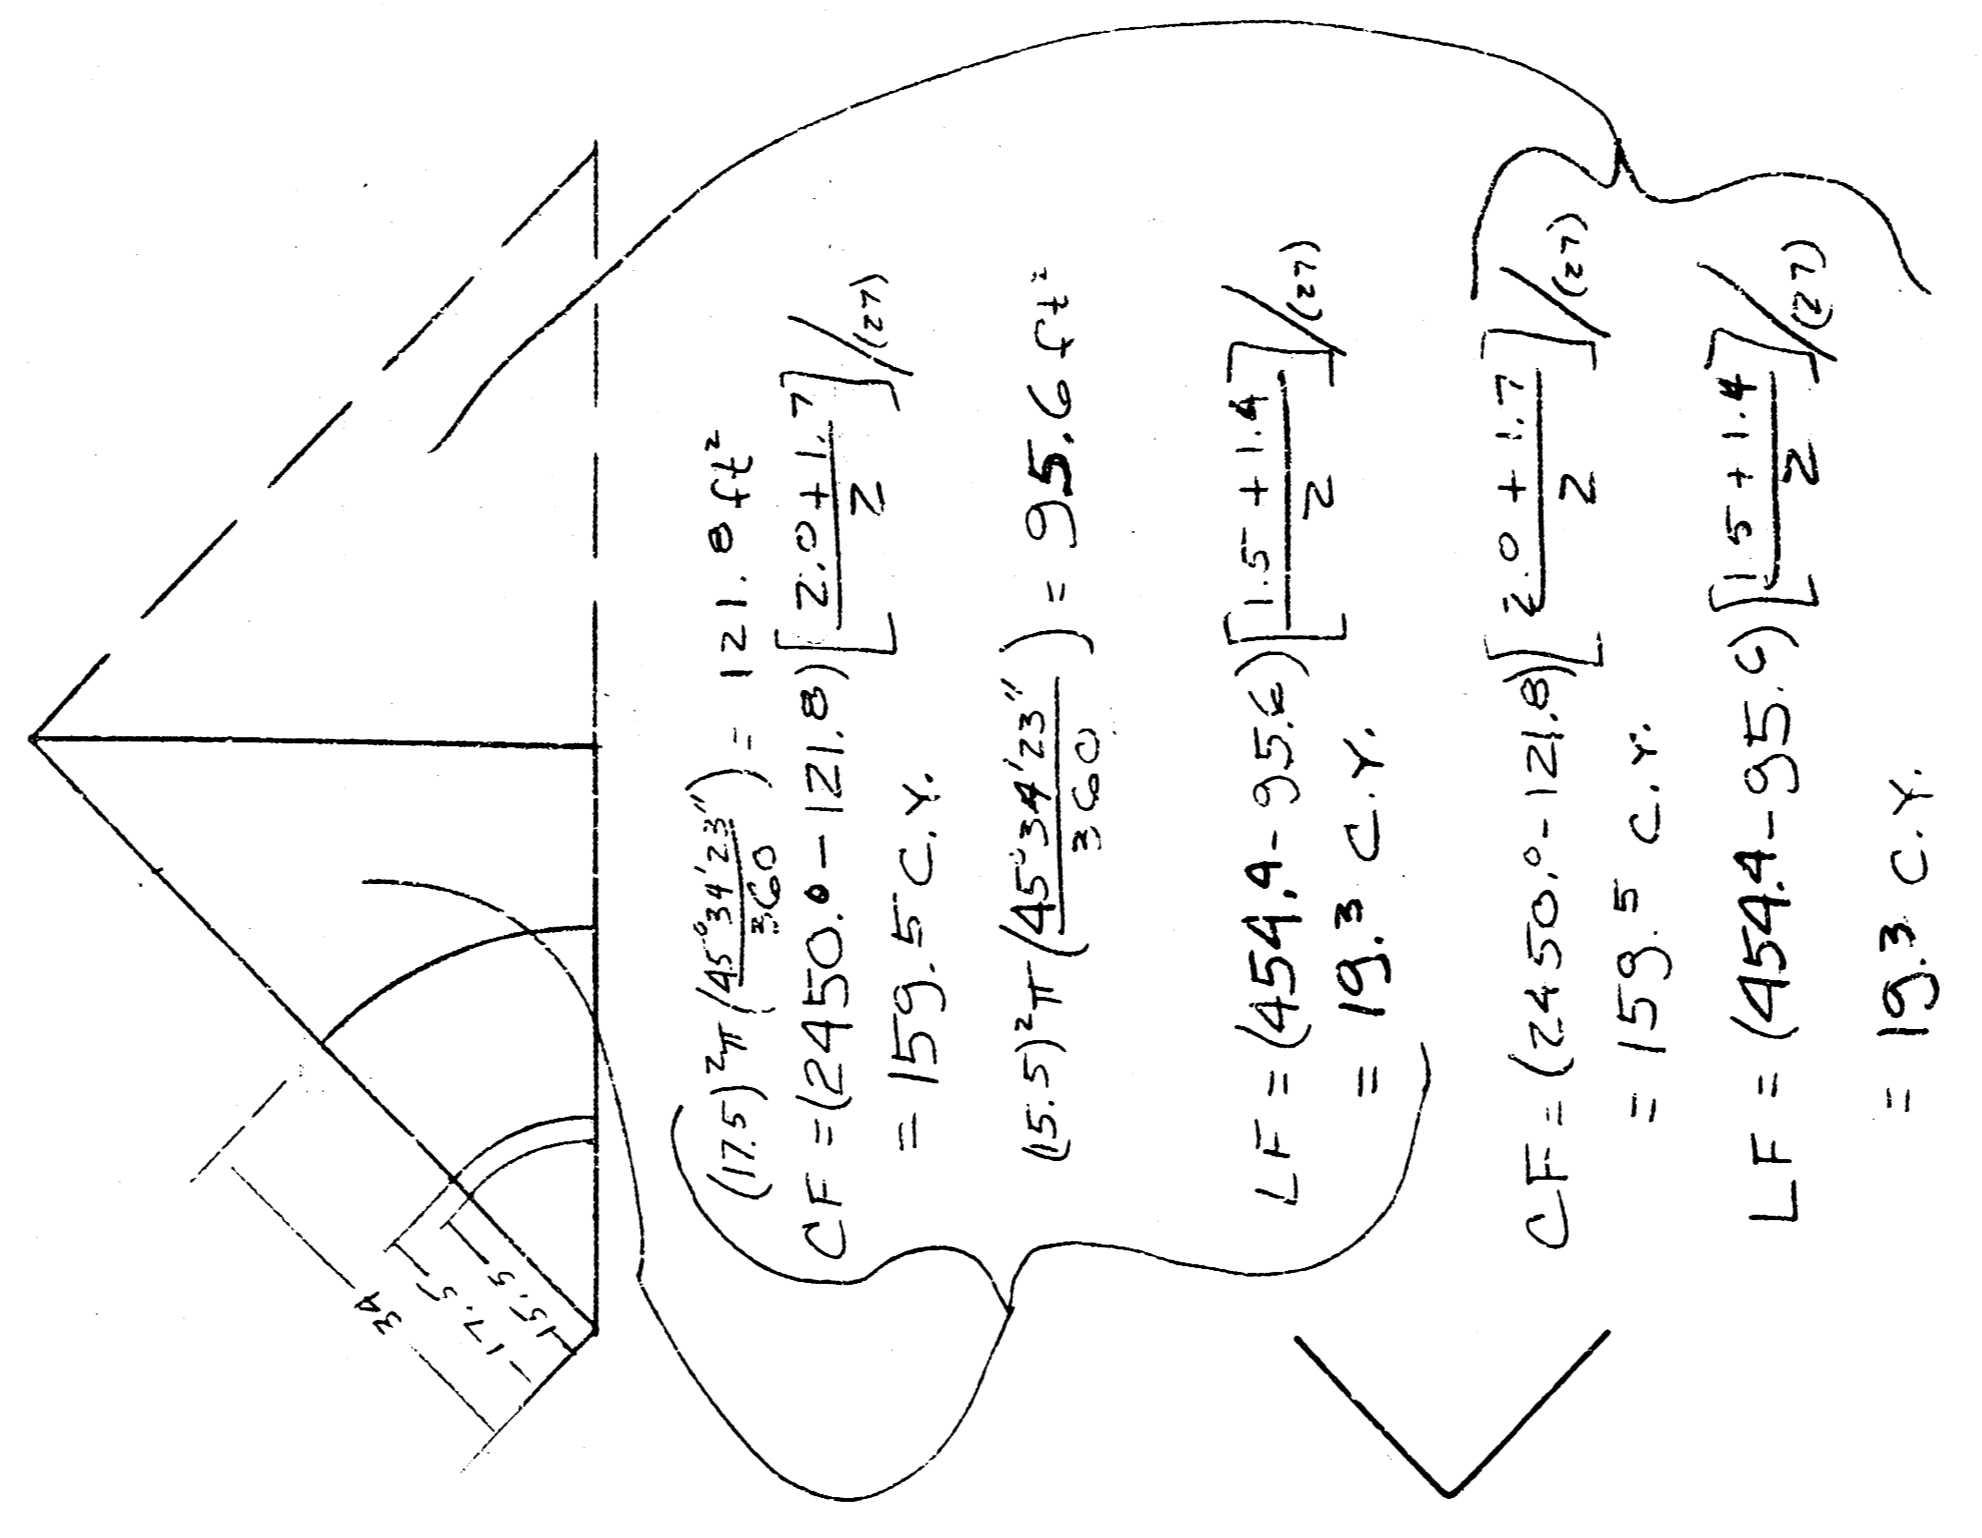 34
17.5
15.5
(17.5)²π(45°34'23"/360) = 121.8 ft²
CF = (2450.0 - 121.8)[2.0 + 1.7/2]/(27)
= 159.5 C.Y.
(15.5)²π(45°34'23"/360) = 95.6 ft²
LF = (454.4 - 95.6)[1.5 + 1.4/2]/(27)
= 19.3 C.Y.
CF = (2450.0 - 121.8)[2.0 + 1.7/2]/(27)
= 159.5 C.Y.
LF = (454.4 - 95.6)[1.5 + 1.4/2]/(27)
= 19.3 C.Y.